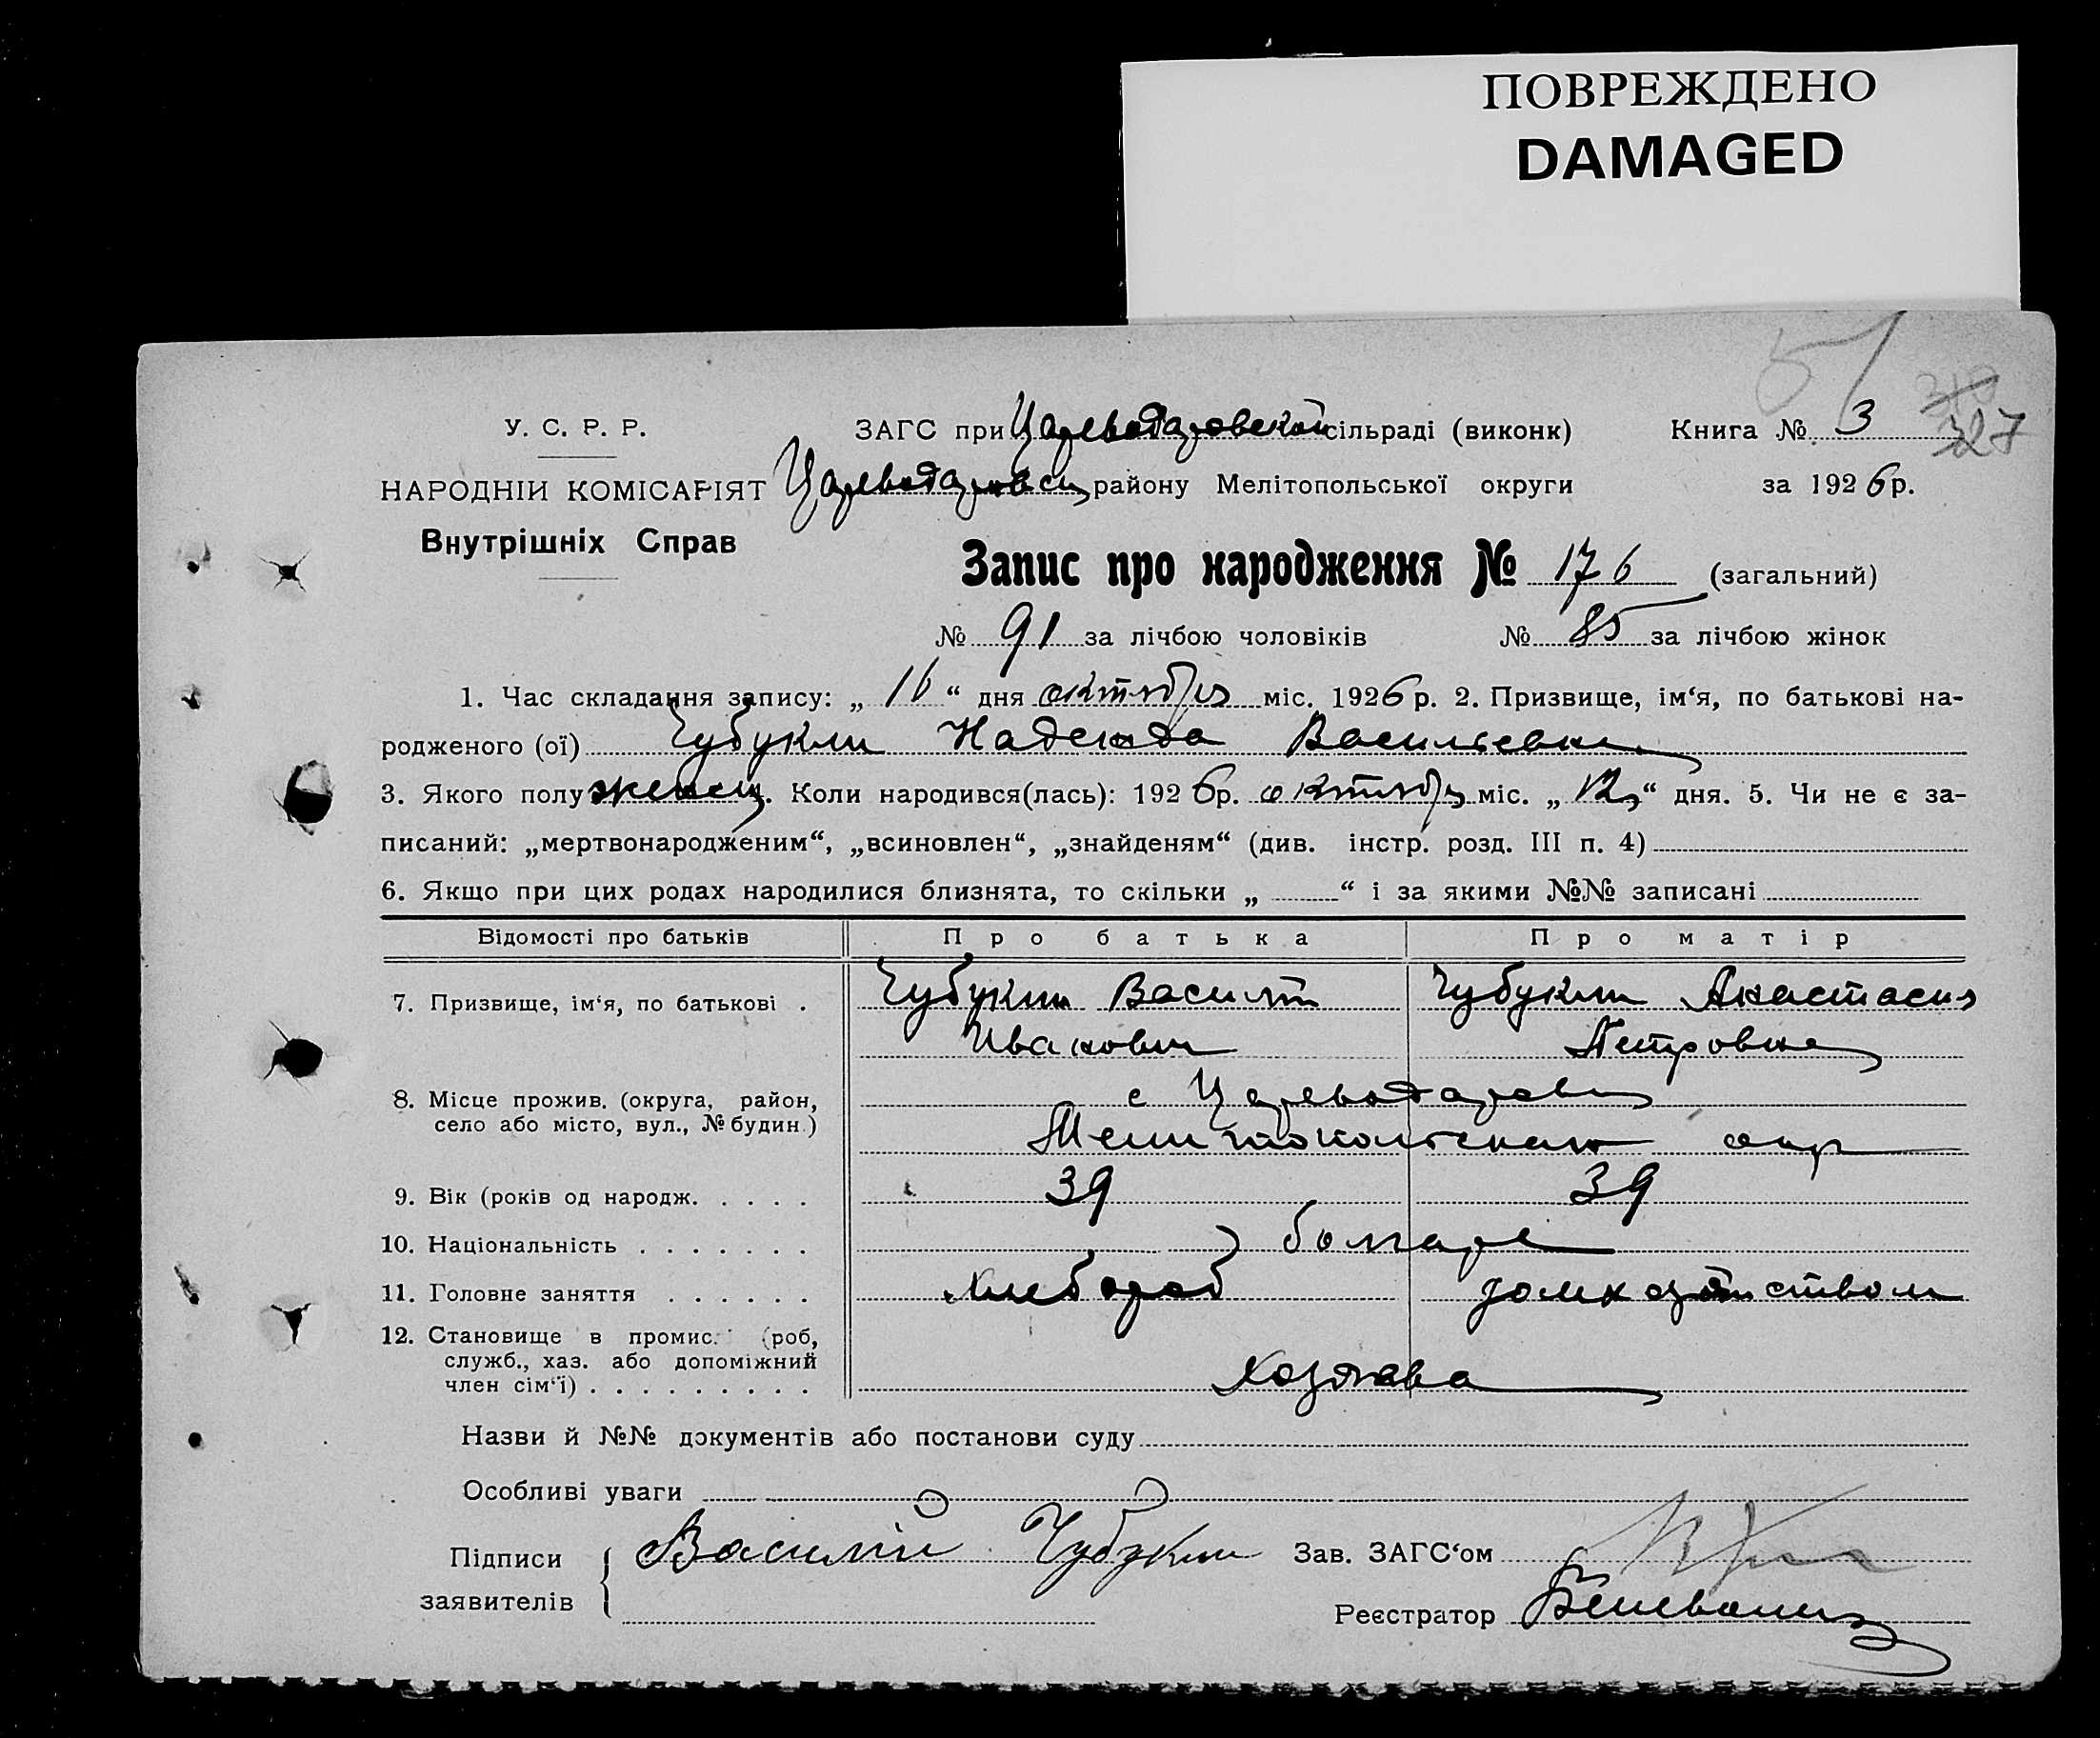 ПОВРЕЖДЕНО
DAMAGED
51
319
327
У. С. Р. Р. ЗАГС при Цареводаровской сільраді (виконк) Книга № 3
НАРОДНІЙ КОМІСАРІЯТ Цареводаровск району Мелітопольської округи за 1926 р.
Внутрішніх Справ
Запис про народження № 176 (загальний)
№ 91 за лічбою чоловіків № 85 за лічбою жінок
1. Час складання запису: „ 16 “ дня октября міс. 1926 р. 2. Призвище, ім‘я, по батькові на-
родженого (ої) Чубукли Надежда Васильевна
3. Якого полу женск. Коли народився(лась): 1926 р. октябр міс. „ 12 “ дня. 5. Чи не є за-
писаний: „мертвонародженим“, „всиновлен“, „знайденям“ (див. інстр. розд. III п. 4)
6. Якщо при цих родах народилися близнята, то скільки „ “ і за якими №№ записані
Відомості про батьків Про батька Про матір
7. Призвище, ім‘я, по батькові . Чубукли Василий Чубукли Анастасия
Иванович Петровна
8. Місце прожив. (округа, район, с Цареводаровк
село або місто, вул., № будин.) Мелитопольская окр
9. Вік (років од народж. . . . . 39 39
10. Національність . . . . . . . болгаре
11. Головне заняття . . . . . . хлебороб домхозяйством
12. Становище в промис. (роб,
служб., хаз. або допоміжний
член сім‘ї) . . . . . . . . . Хозяева
Назви й №№ документів або постанови суду
Особливі уваги
Підписи Василий Чубукли Зав. ЗАГС‘ом
заявителів Реєстратор